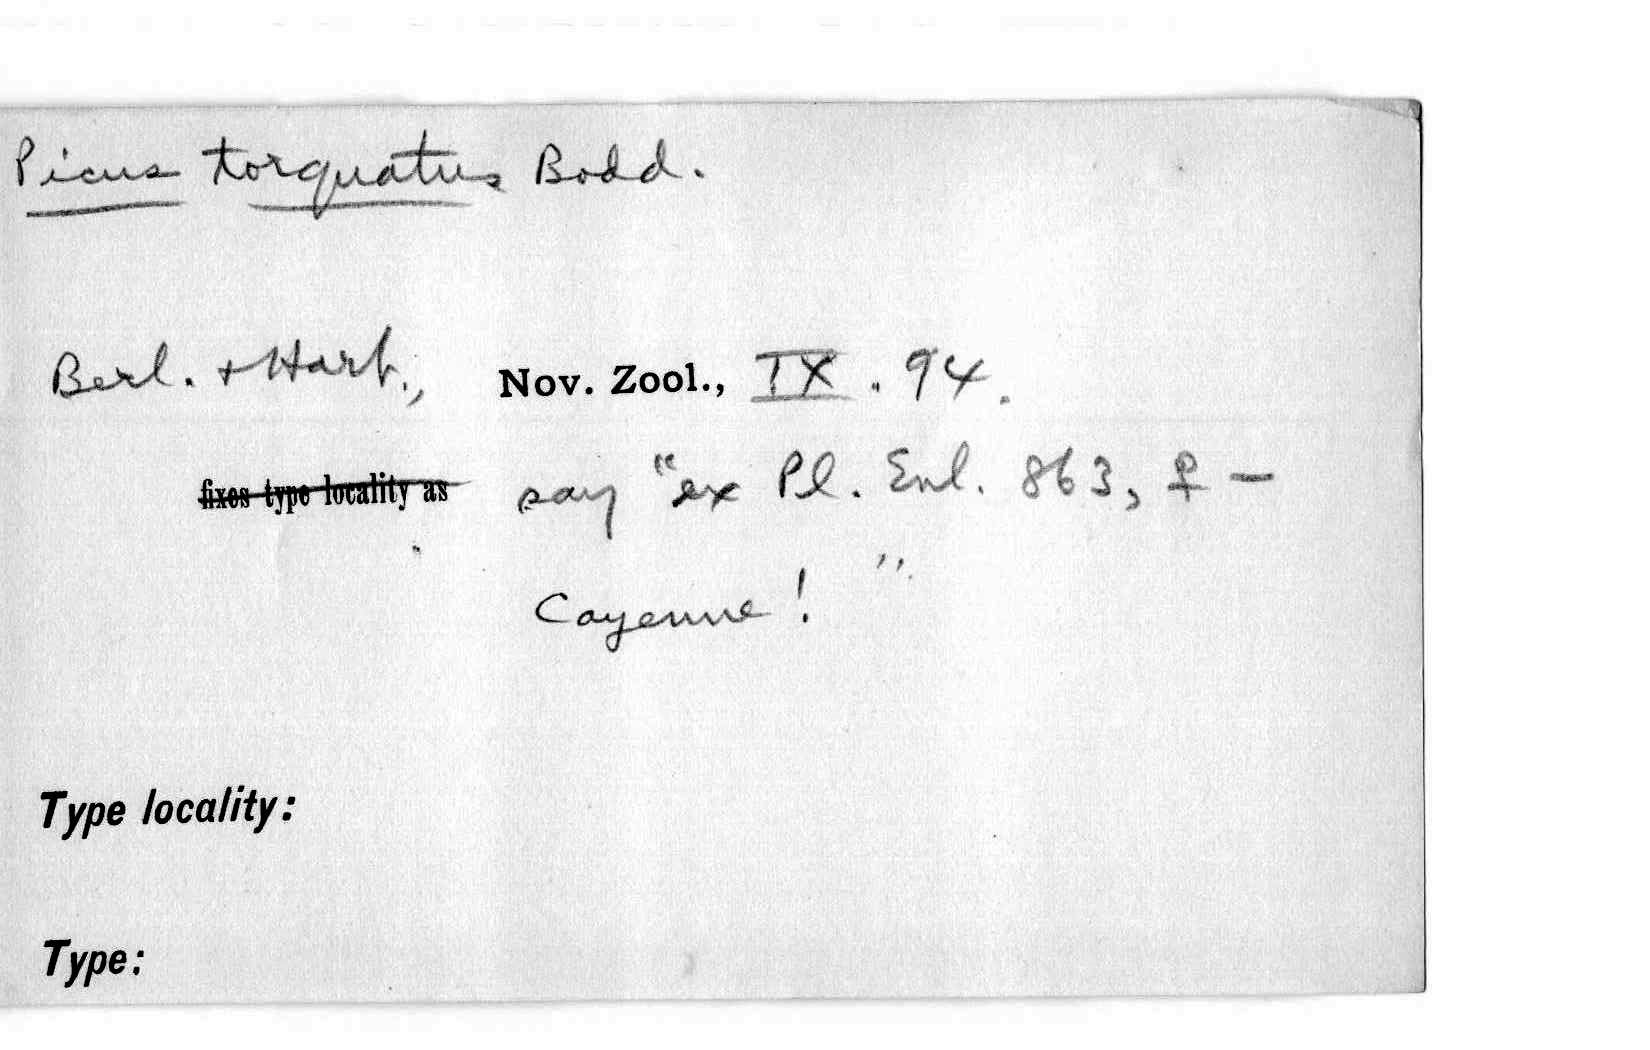 Picus torquatus Bodd.
Berl. + Hart., Nov. Zool., IX. 94.
fixes type locality as say "ex Pl. Enl. 863, ♀ —
Cayenne! ".
Type locality:
Type: